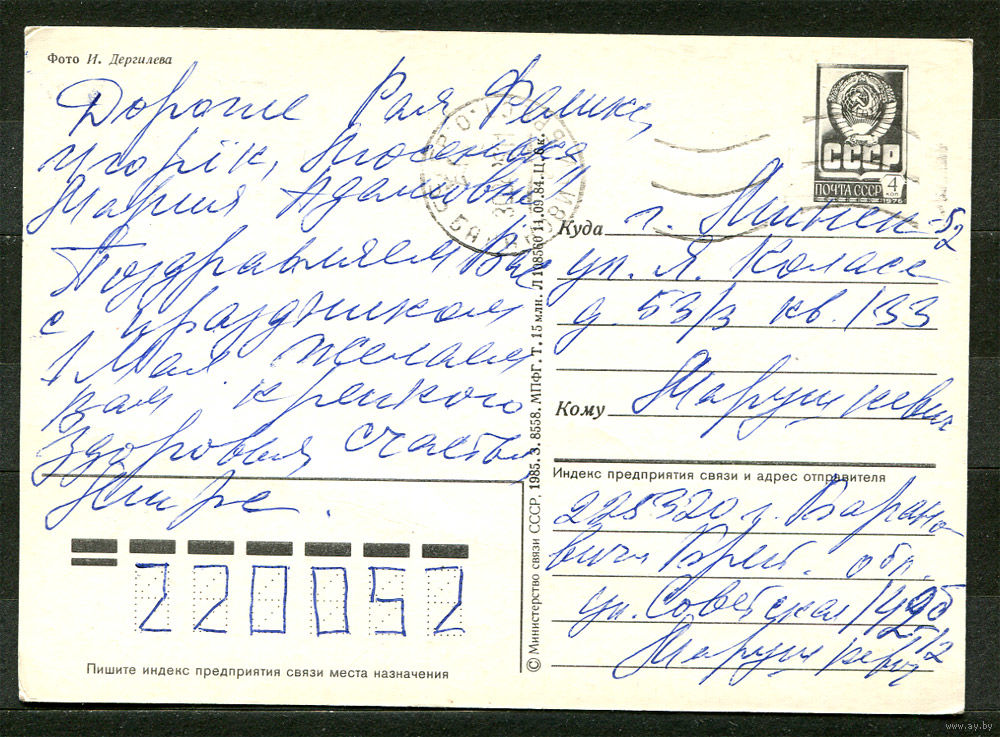 Фото И. Дергилева
Дорогие Рая Феликс,
Игорёк,
Мария Адамовна
Поздравляем Вас
с праздником
1 Мая желаем
вам крепкого
здоровья, счастья
мира.
СССР
ПОЧТА СССР 4 коп
1976
Куда г. Минск-52
ул. Я. Коласа
д. 53/3 кв. 133
Кому Марушкевич
Индекс предприятия связи и адрес отправителя
225320 г. Барано
вичи Брест. обл.
ул. Советская
Марушкевич
220052
Пишите индекс предприятия связи места назначения
© Министерство связи СССР, 1985. З. 8558. МПФГ. Т. 15 млн. 11.09.84. Ц. 6 к.
www.ay.by